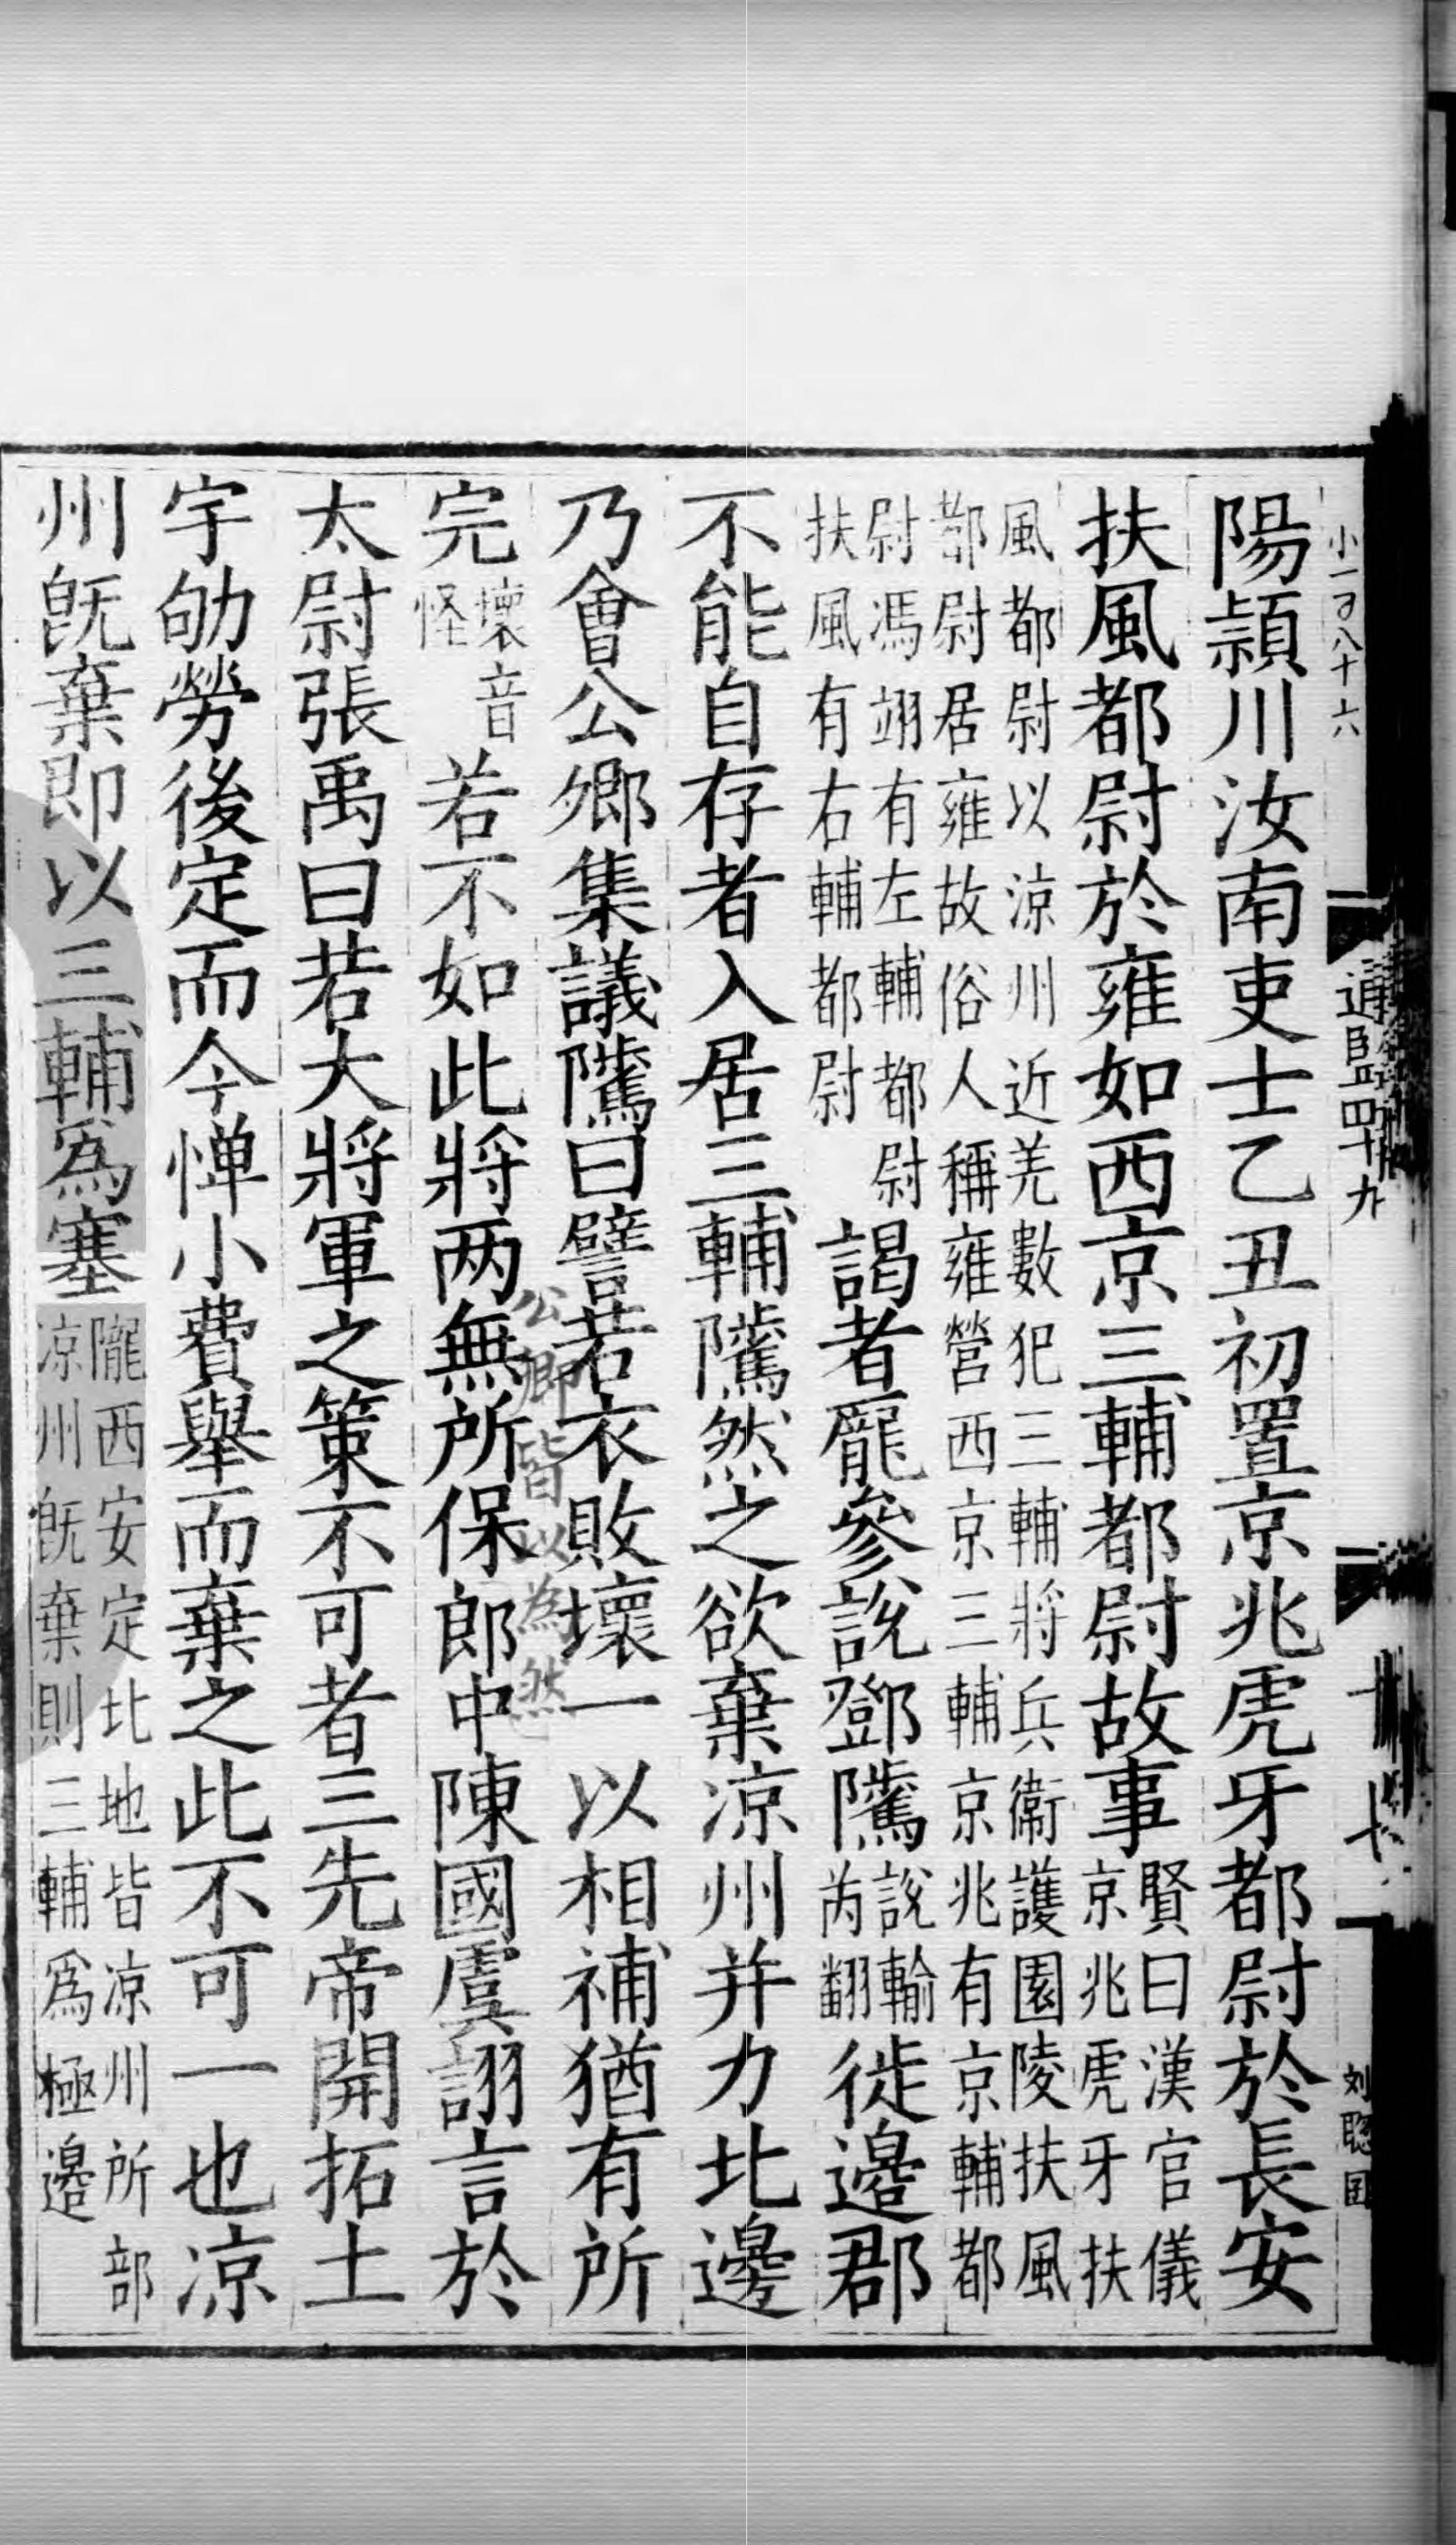 小一百八十六
通鑑四十九
刘聪
陽潁川汝南吏士乙丑初置京兆虎牙都尉於長安
扶風都尉於雍如西京三輔都尉故事賢曰漢官儀京兆虎牙扶
風都尉以涼州近羌數犯三輔將兵衞護園陵扶風都尉居雍故俗人稱雍營西京三輔京兆有京輔都
尉馮翊有左輔都尉扶風有右輔都尉謁者龐參說鄧隲說輸芮翻徙邊郡
不能自存者入居三輔隲然之欲棄涼州并力北邊
乃會公卿集議隲曰譬若衣敗壞一以相補猶有所
完壞音怪若不如此將两無所保郎中陳國虞詡言於
公卿皆以為然
太尉張禹曰若大將軍之策不可者三先帝開拓土
宇劬勞後定而今憚小費舉而棄之此不可一也凉
州旣棄即以三輔爲塞隴西安定北地皆凉州所部凉州旣棄則三輔爲極邊